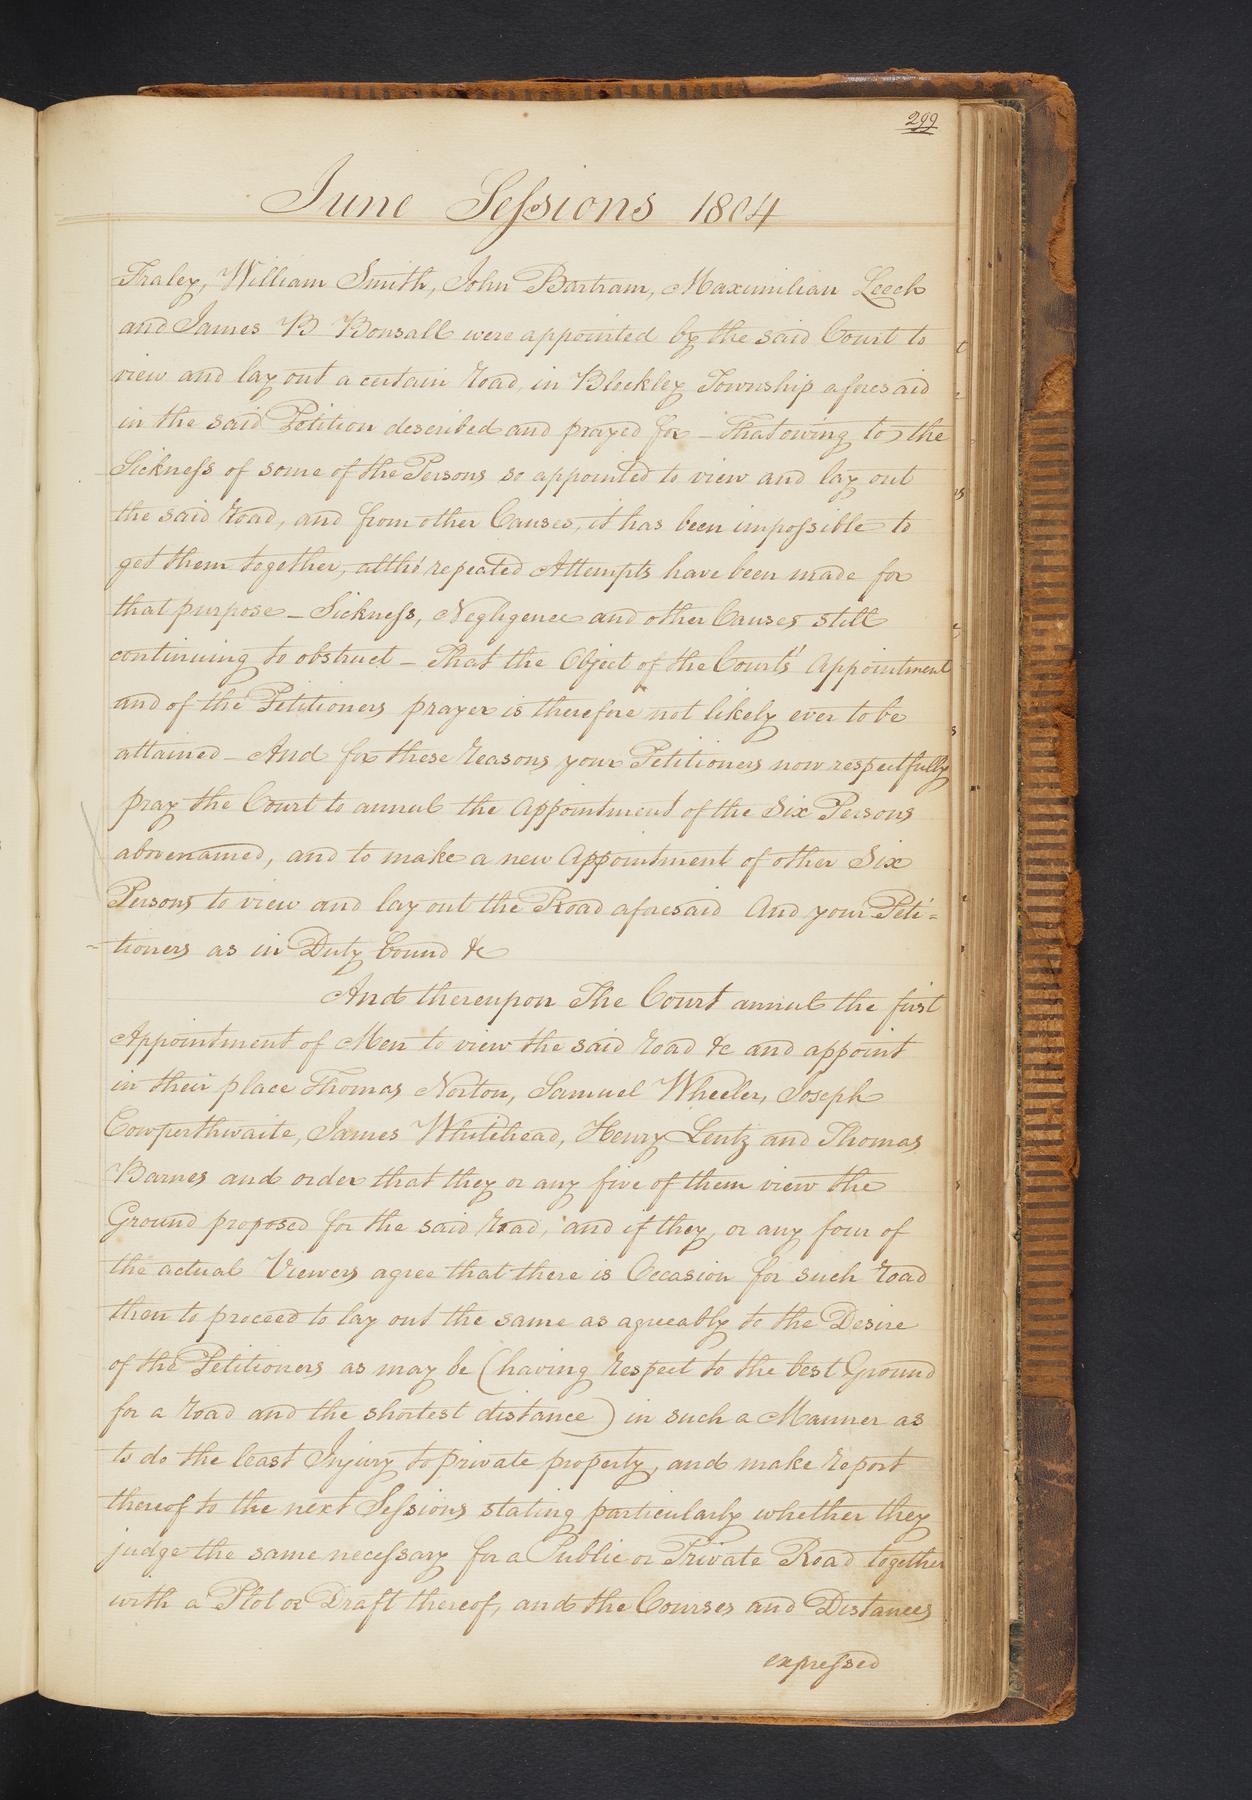 299
June Sessions 1804
Fraley, William Smith, John Bartram, Maximilian Leech
and James B Bonsall were appointed by the said Court to
view and lay out a certain road, in Blockley Township aforesaid
in the said Petition described and prayed for – That owing to the
Sickness of some of the Persons so appointed to view and lay out
the said road, and from other Causes, it has been impossible to
get them together, altho' repeated Attempts have been made for
that purpose – Sickness, Negligence and other Causes still
continuing to obstruct – That the Object of the Court's Appointment
and of the Petitioners prayer is therefore not likely ever to be
attained – And for these reasons your Petitioners now respectfully
pray the Court to annul the Appointment of the Six Persons
abovenamed, and to make a new Appointment of other Six
Persons to view and lay out the Road aforesaid And your Peti=
=tioners as in Duty bound &c
And thereupon The Court annul the first
Appointment of Men to view the said road &c and appoint
in their place Thomas Norton, Samuel Wheeler, Joseph
Cowperthwaite, James Whitehead, Henry Lentz and Thomas
Barnes and order that they or any five of them view the
Ground proposed for the said road, and if they, or any four of
the actual Viewers agree that there is Occasion for such road
then to proceed to lay out the same as agreeably to the Desire
of the Petitioners as may be (having respect to the best Ground
for a road and the shortest distance) in such a Manner as
to do the least Injury to private property, and make report
thereof to the next Sessions stating particularly whether they
judge the same necessary for a Public or Private Road together
with a Plot or Draft thereof, and the Courses and Distances
expressed